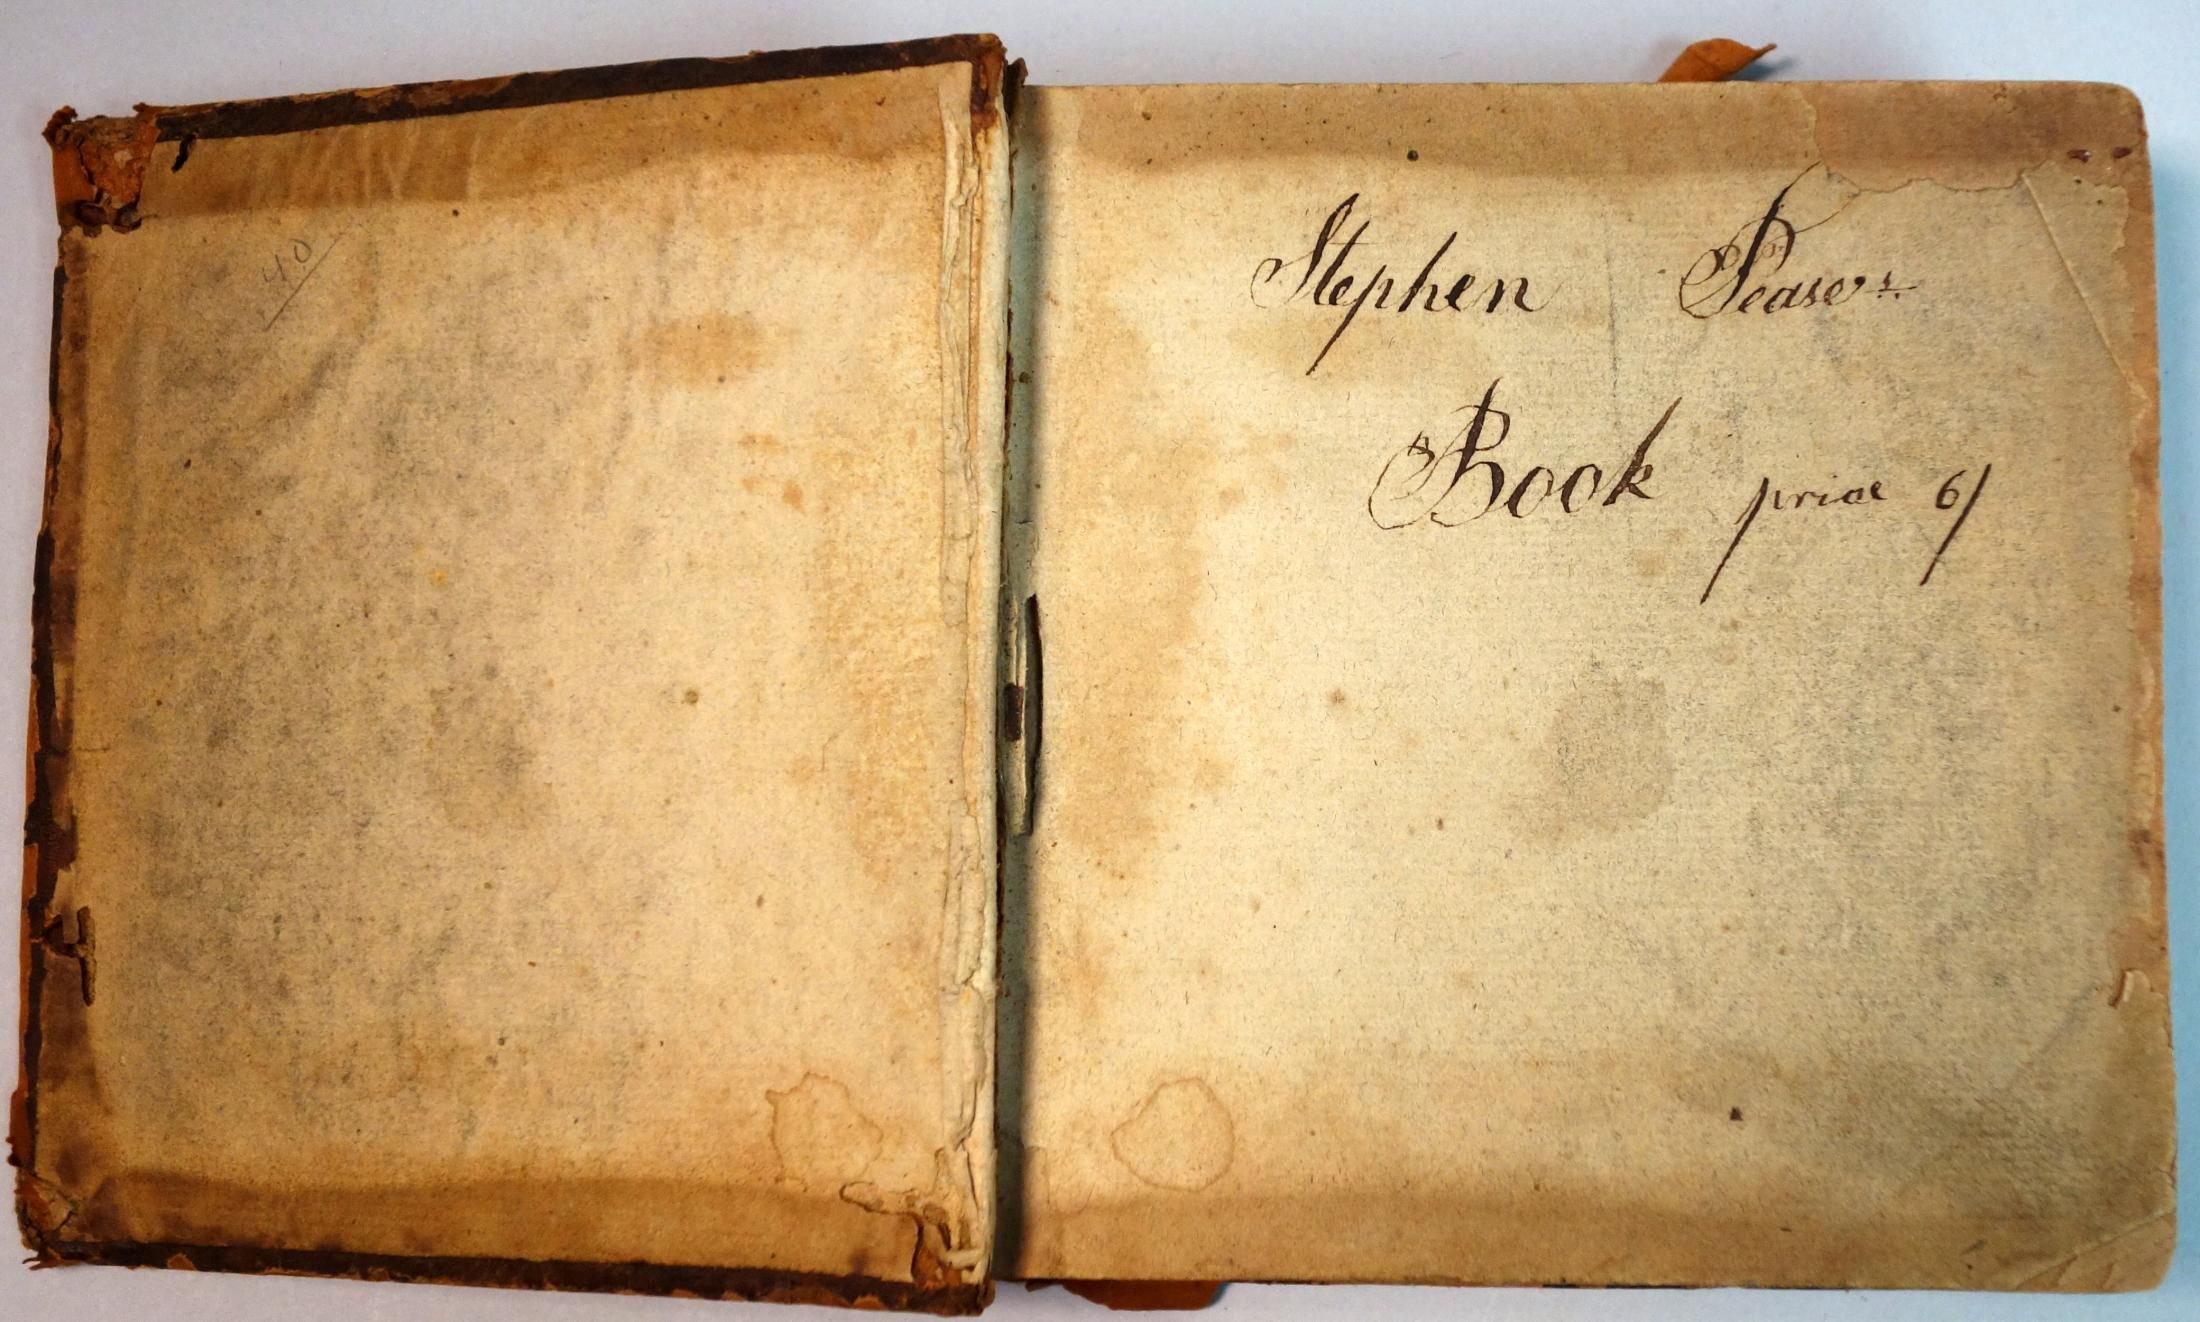 40
Stephen Peases
Book price 6/